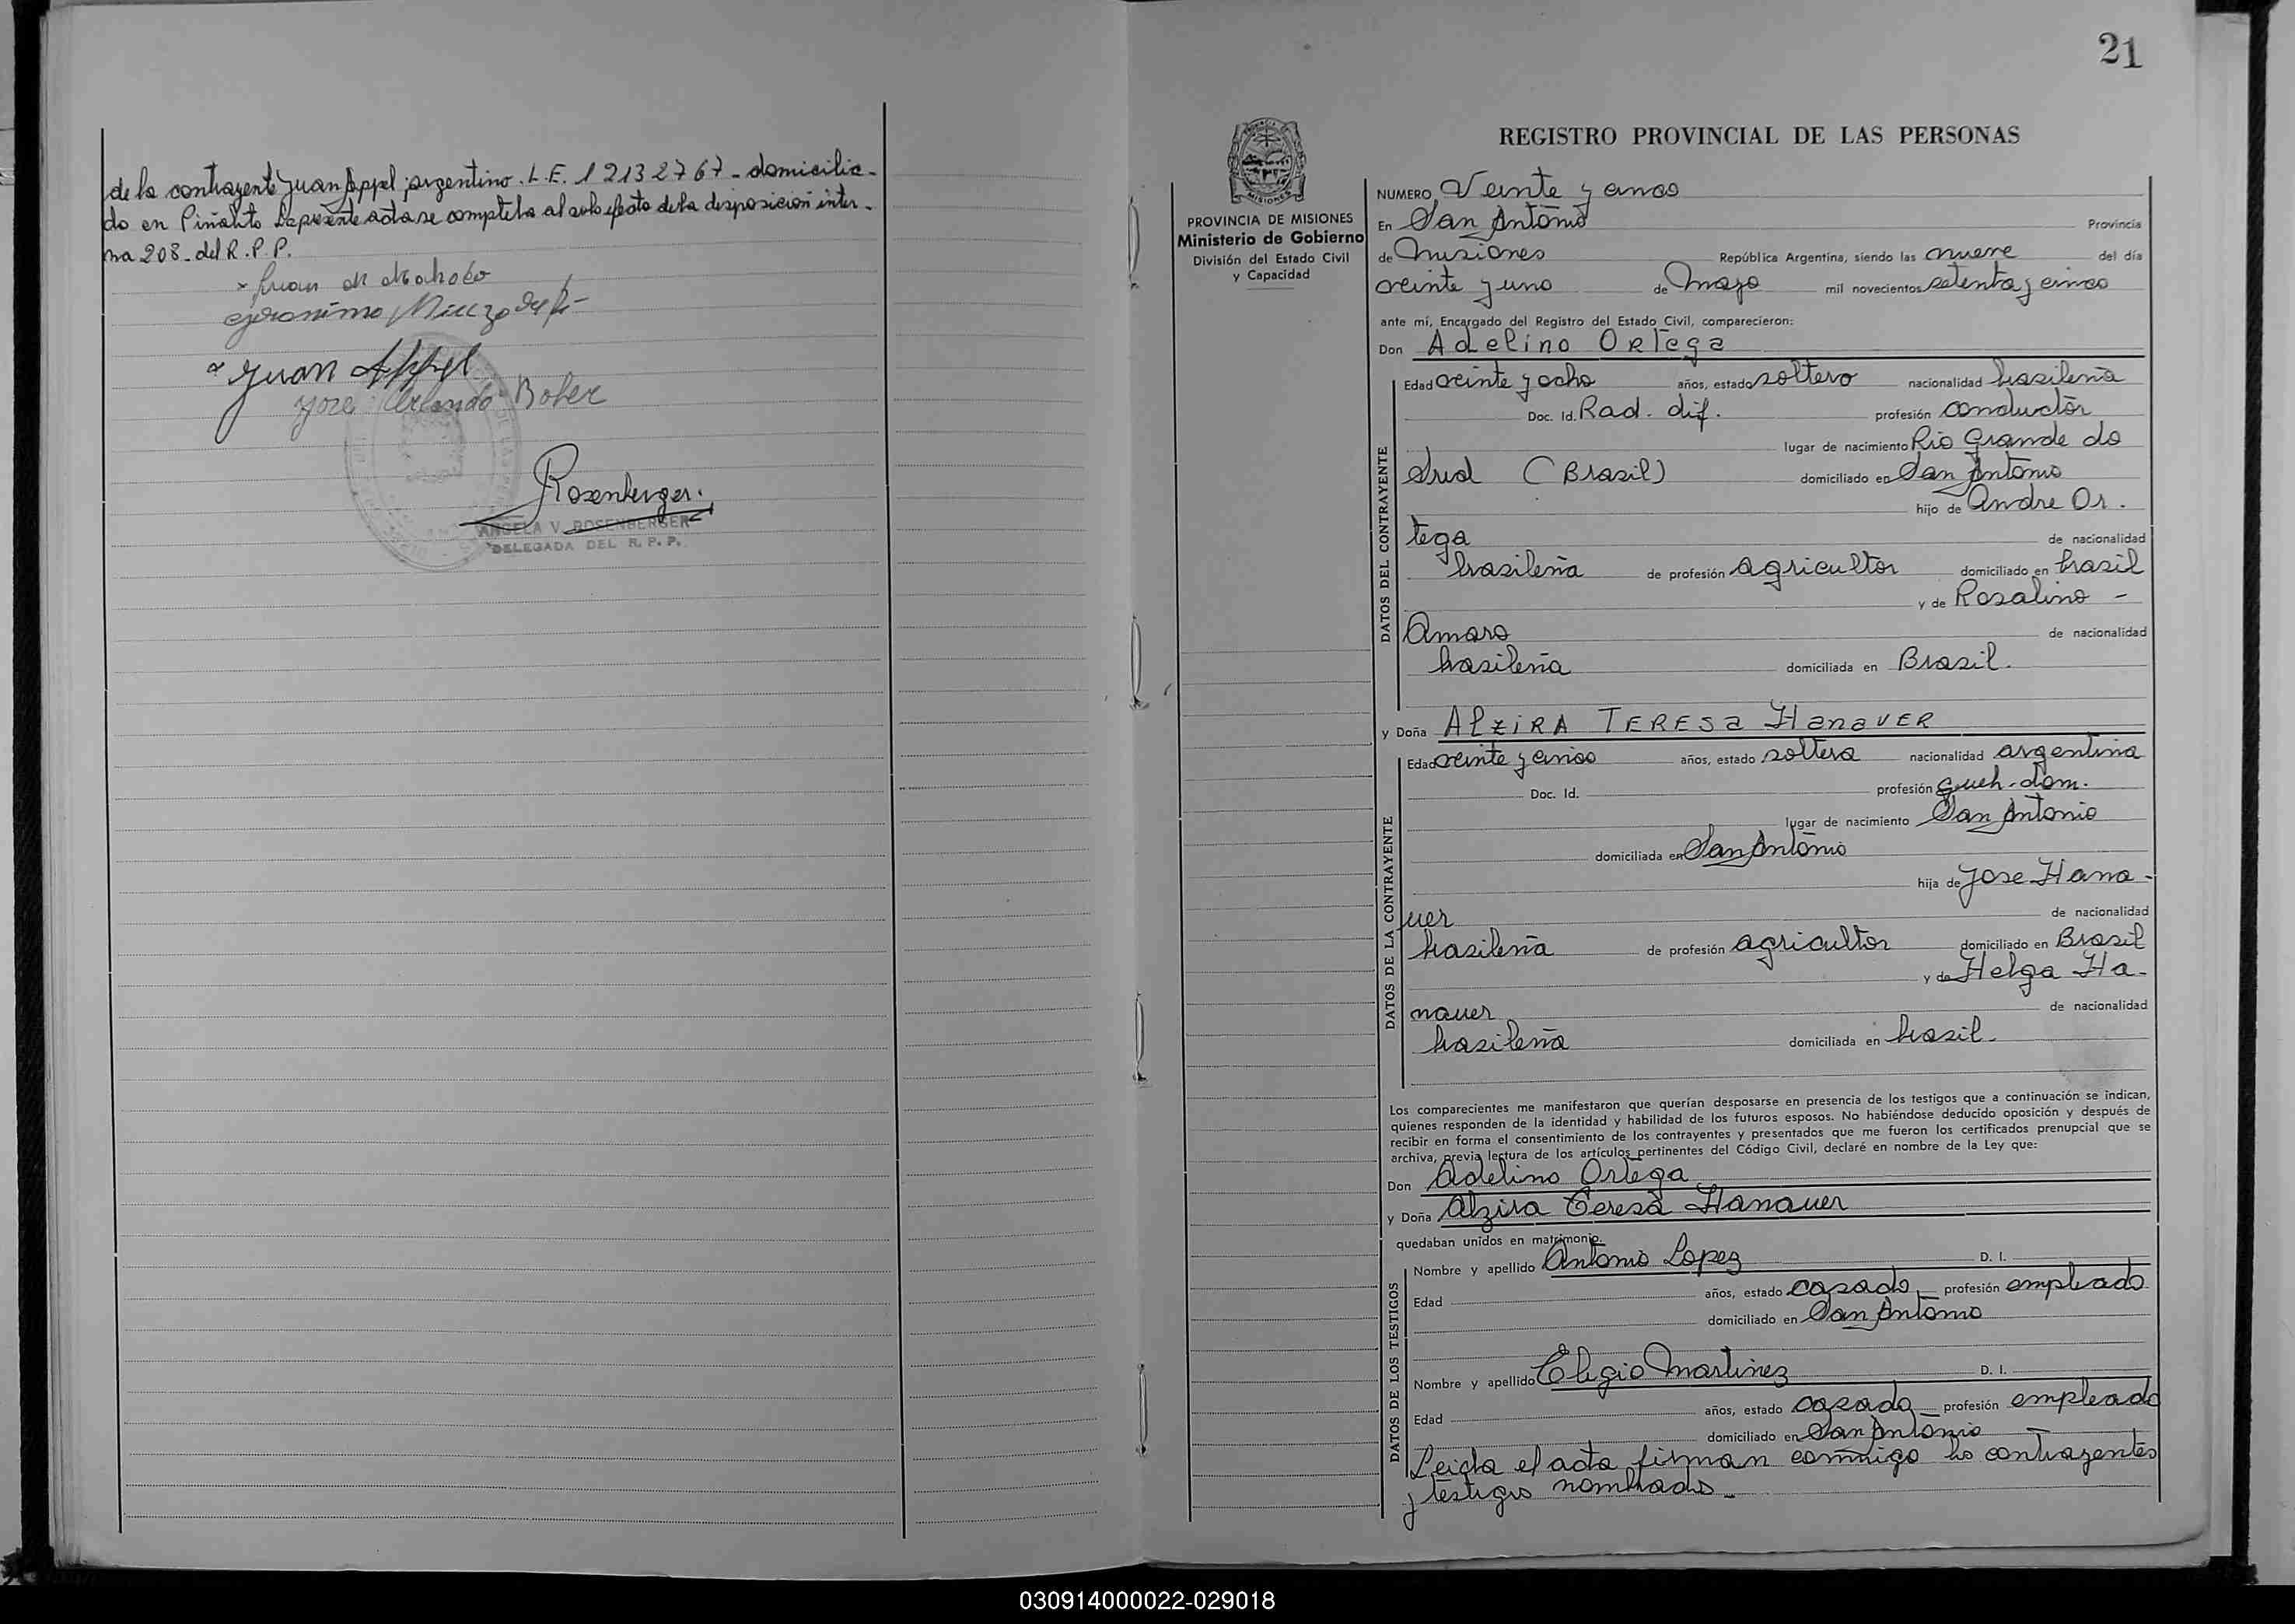 de la contrayente Juan Appel, argentino. L.E. 12132767 - domicilia-
do en Piñalito La presente acta se completa al solo efecto de la disposicion inter-
na 208 - del R.P.P.
Juan
Geronimo
Juan Appel
Jose Orlando Bober
Rosenberger.
ANGELA V. ROSENBERGER
DELEGADA DEL R. P. P.
21
MISIONES
PROVINCIA DE MISIONES
Ministerio de Gobierno
División del Estado Civil
y Capacidad
REGISTRO PROVINCIAL DE LAS PERSONAS
NUMERO Veinte y cinco
En San Antonio Provincia
de Misiones República Argentina, siendo las nueve del día
veinte y uno de Mayo mil novecientos setenta y cinco
ante mí, Encargado del Registro del Estado Civil, comparecieron:
Don Adelino Ortega
DATOS DEL CONTRAYENTE
Edad veinte y ocho años, estado soltero nacionalidad brasileña
Doc. Id. Rad. dif. profesión conductor
lugar de nacimiento Rio Grande do
Sud (Brasil) domiciliado en San Antonio
hijo de Andre Or.
tega de nacionalidad
brasileña de profesión agricultor domiciliado en brasil
y de Rosalino -
Amaro de nacionalidad
brasileña domiciliada en Brasil.
y Doña Alzira Teresa Hanaver
DATOS DE LA CONTRAYENTE
Edad veinte y cinco años, estado soltera nacionalidad argentina
Doc. Id. profesión queh. dom.
lugar de nacimiento San Antonio
domiciliada en San Antonio
hija de Jose Hana-
uer de nacionalidad
brasileña de profesión agricultor domiciliado en Brasil
y de Helga Ha-
nauer de nacionalidad
brasileña domiciliada en brasil.
Los comparecientes me manifestaron que querían desposarse en presencia de los testigos que a continuación se indican,
quienes responden de la identidad y habilidad de los futuros esposos. No habiéndose deducido oposición y después de
recibir en forma el consentimiento de los contrayentes y presentados que me fueron los certificados prenupcial que se
archiva, previa lectura de los artículos pertinentes del Código Civil, declaré en nombre de la Ley que:
Don Adelino Ortega
y Doña Alzira Teresa Hanauer
quedaban unidos en matrimonio.
DATOS DE LOS TESTIGOS
Nombre y apellido Antonio Lopez D. I.
Edad años, estado casado profesión empleado
domiciliado en San Antonio
Nombre y apellido Eligio Martinez D. I.
Edad años, estado casado profesión empleado
domiciliado en San Antonio
Leida el acta firman conmigo los contrayentes
y testigos nombrados -
030914000022-029018